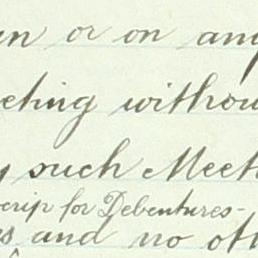 or on any
eting withou
such Meet
scrip for Debentures-
and no oth